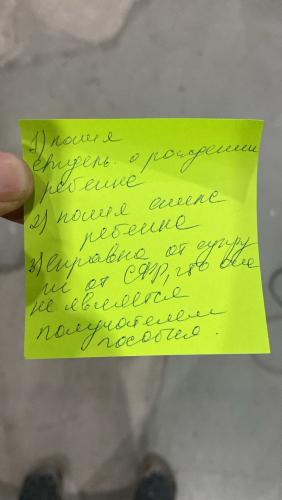 1) копия
свидель. о рождении
ребенка
2) копия снилс
ребенка
3) справка от супру
ги от СФР, что она
не является
получателем
пособия.